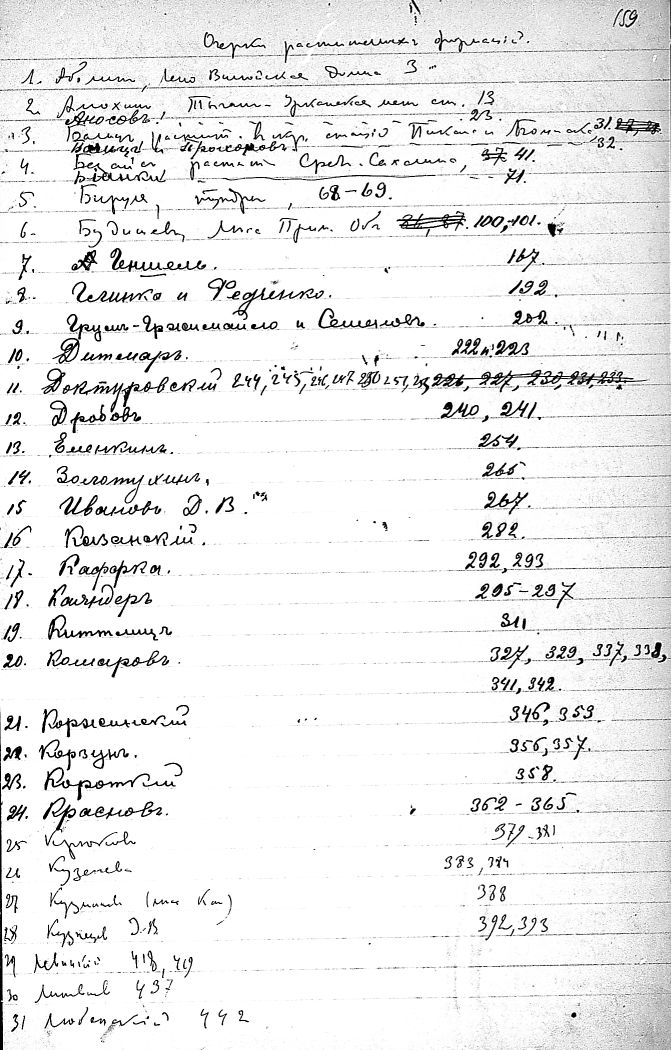 159
Очерки растительныхъ формацій.
1. Аболинъ, Лено Вилюйская долина 3
2. Анохинъ, 13
Аносовъ! 23.
3. растит. и 31.
32.
4. растит Сред. Сахалина, 41.
Бianки 71.
5. Бируля, тундры, 68-69.
6. Будищевъ, Леса Прим. Обл 100, 101.
7. Геншель. 167.
8. Глинка и Федченко. 192.
9. Грумъ-Гржимайло и Семеновъ. 202.
10. Дитмаръ. 222 и 223
11. Доктуровский 244, 245, 246, 247 250 251, 226, 227, 230, 231, 233.
12. Дробовъ 240, 241.
13. Еленкинъ. 254.
14. Золотухинъ. 265.
15 Ивановъ Д. В. 267.
16 Казанскій. 282.
17. Кафарка. 292, 293
18. Каяндеръ 295-297
19. Киттлицъ 311
20. Комаровъ. 327, 329, 337, 338,
341, 342.
21. Коржинскій 346, 353.
22. Корзунъ. 356, 357.
23. Короткий 358.
24. Красновъ. 362 - 365.
25 Крюковъ 379-381
26 Кузенева 383, 384
27 388
28 Кузнецов Д.В 392, 393
29 Левицкий 418, 419
30 Литвинов 437
31 Любенский 442